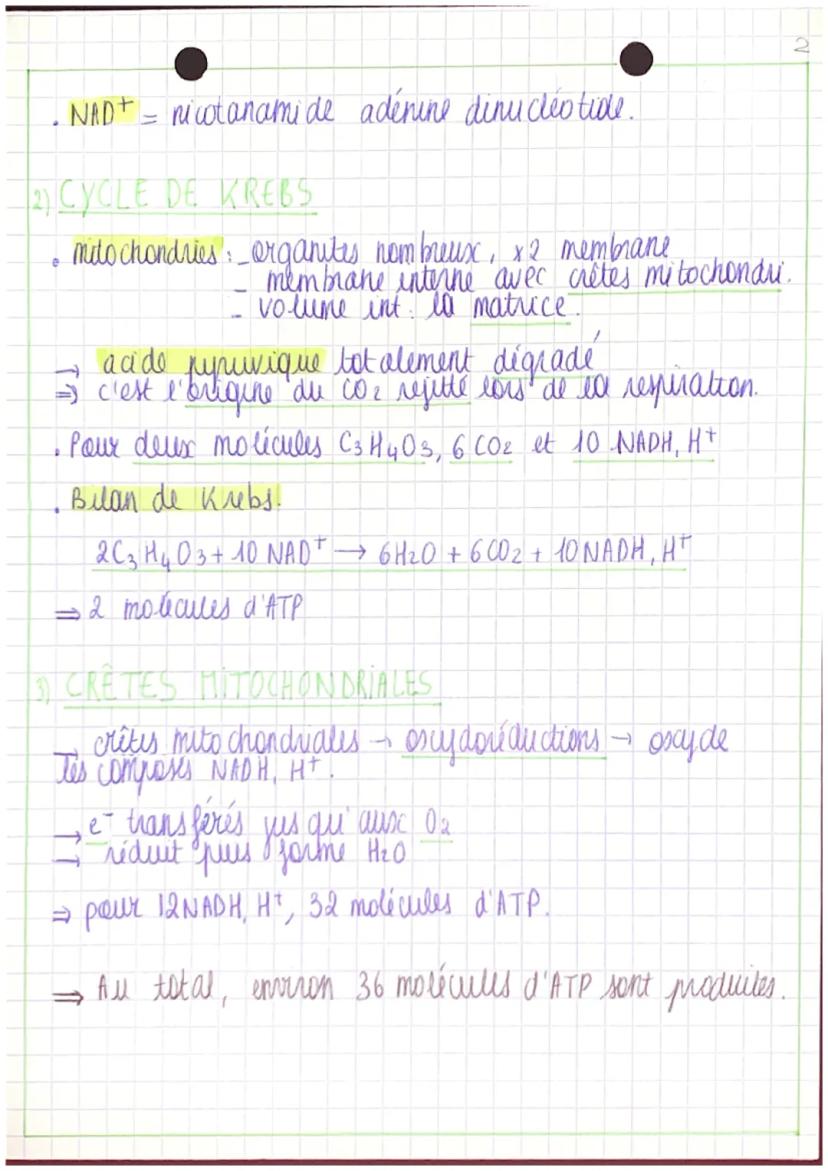 2
. NAD+ = nicotanamide adénine dinucléotide.
2) CYCLE DE KREBS
• mitochondries : - organites nombreux, x2 membrane
- membrane interne avec crêtes mitochondri.
- volume int : la matrice.
→ acide pyruvique totalement dégradé
⇒ c'est l'origine du CO2 rejetté lors de la respiration.
. Pour deux molécules C3H4O3, 6 CO2 et 10 NADH, H+
. Bilan de Krebs.
2C3H4O3 + 10 NAD+ → 6H2O + 6CO2 + 10NADH, H+
⇒ 2 molécules d'ATP
3) CRÊTES MITOCHONDRIALES
→ crêtes mitochondriales → oxydoréductions → oxyde
les composés NADH, H+.
→ e- transférés jusqu'aux O2
→ réduit puis forme H2O
⇒ pour 12NADH, H+, 32 molécules d'ATP.
⇒ Au total, environ 36 molécules d'ATP sont produites.